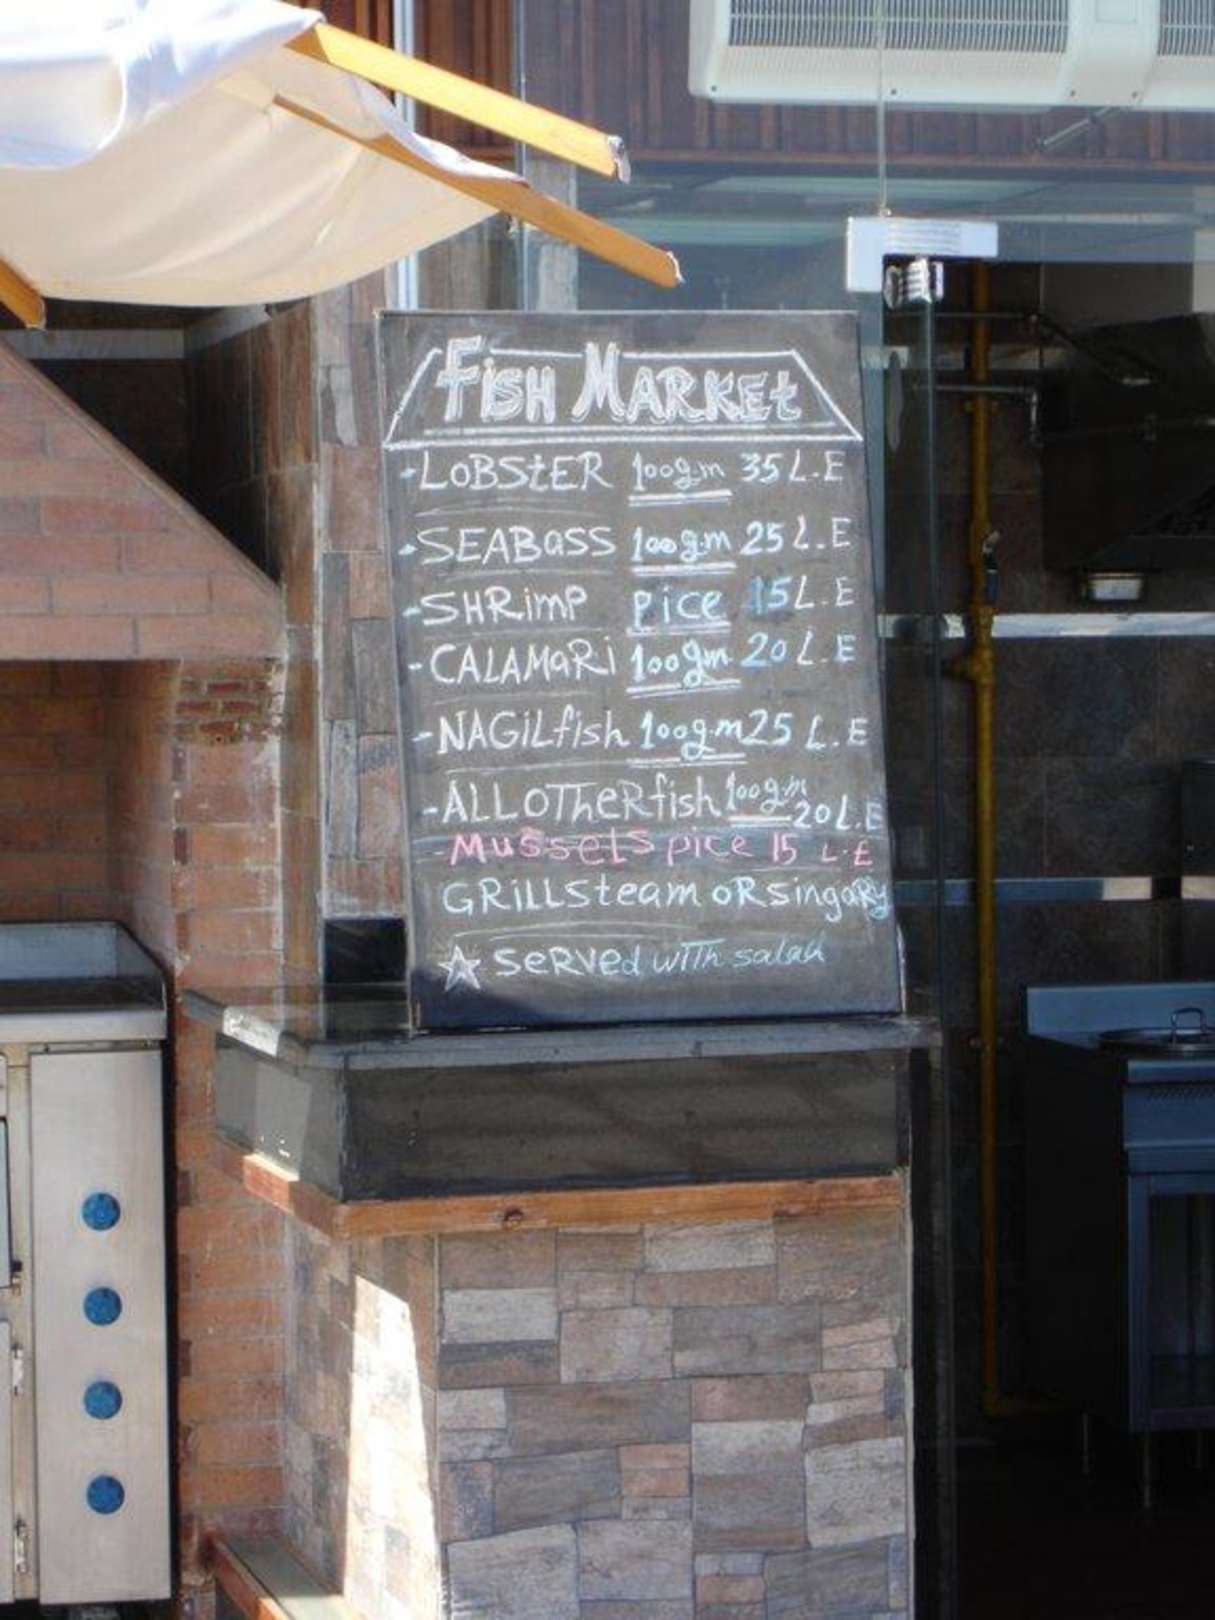 FISH MARKEt
-LOBStER 100gm 35 L.E
-SEABass 100gm 25 L.E
-SHRimp pice 15 L.E
-CALAMaRi 100gm 20 L.E
-NAGiLfish 100gm 25 L.E
-ALLOTHeR fish 100gm 20 L.E
-Mussels pice 15 L.E
GRiLL Steam oR singaRy
☆ SeRVed wiTh salad